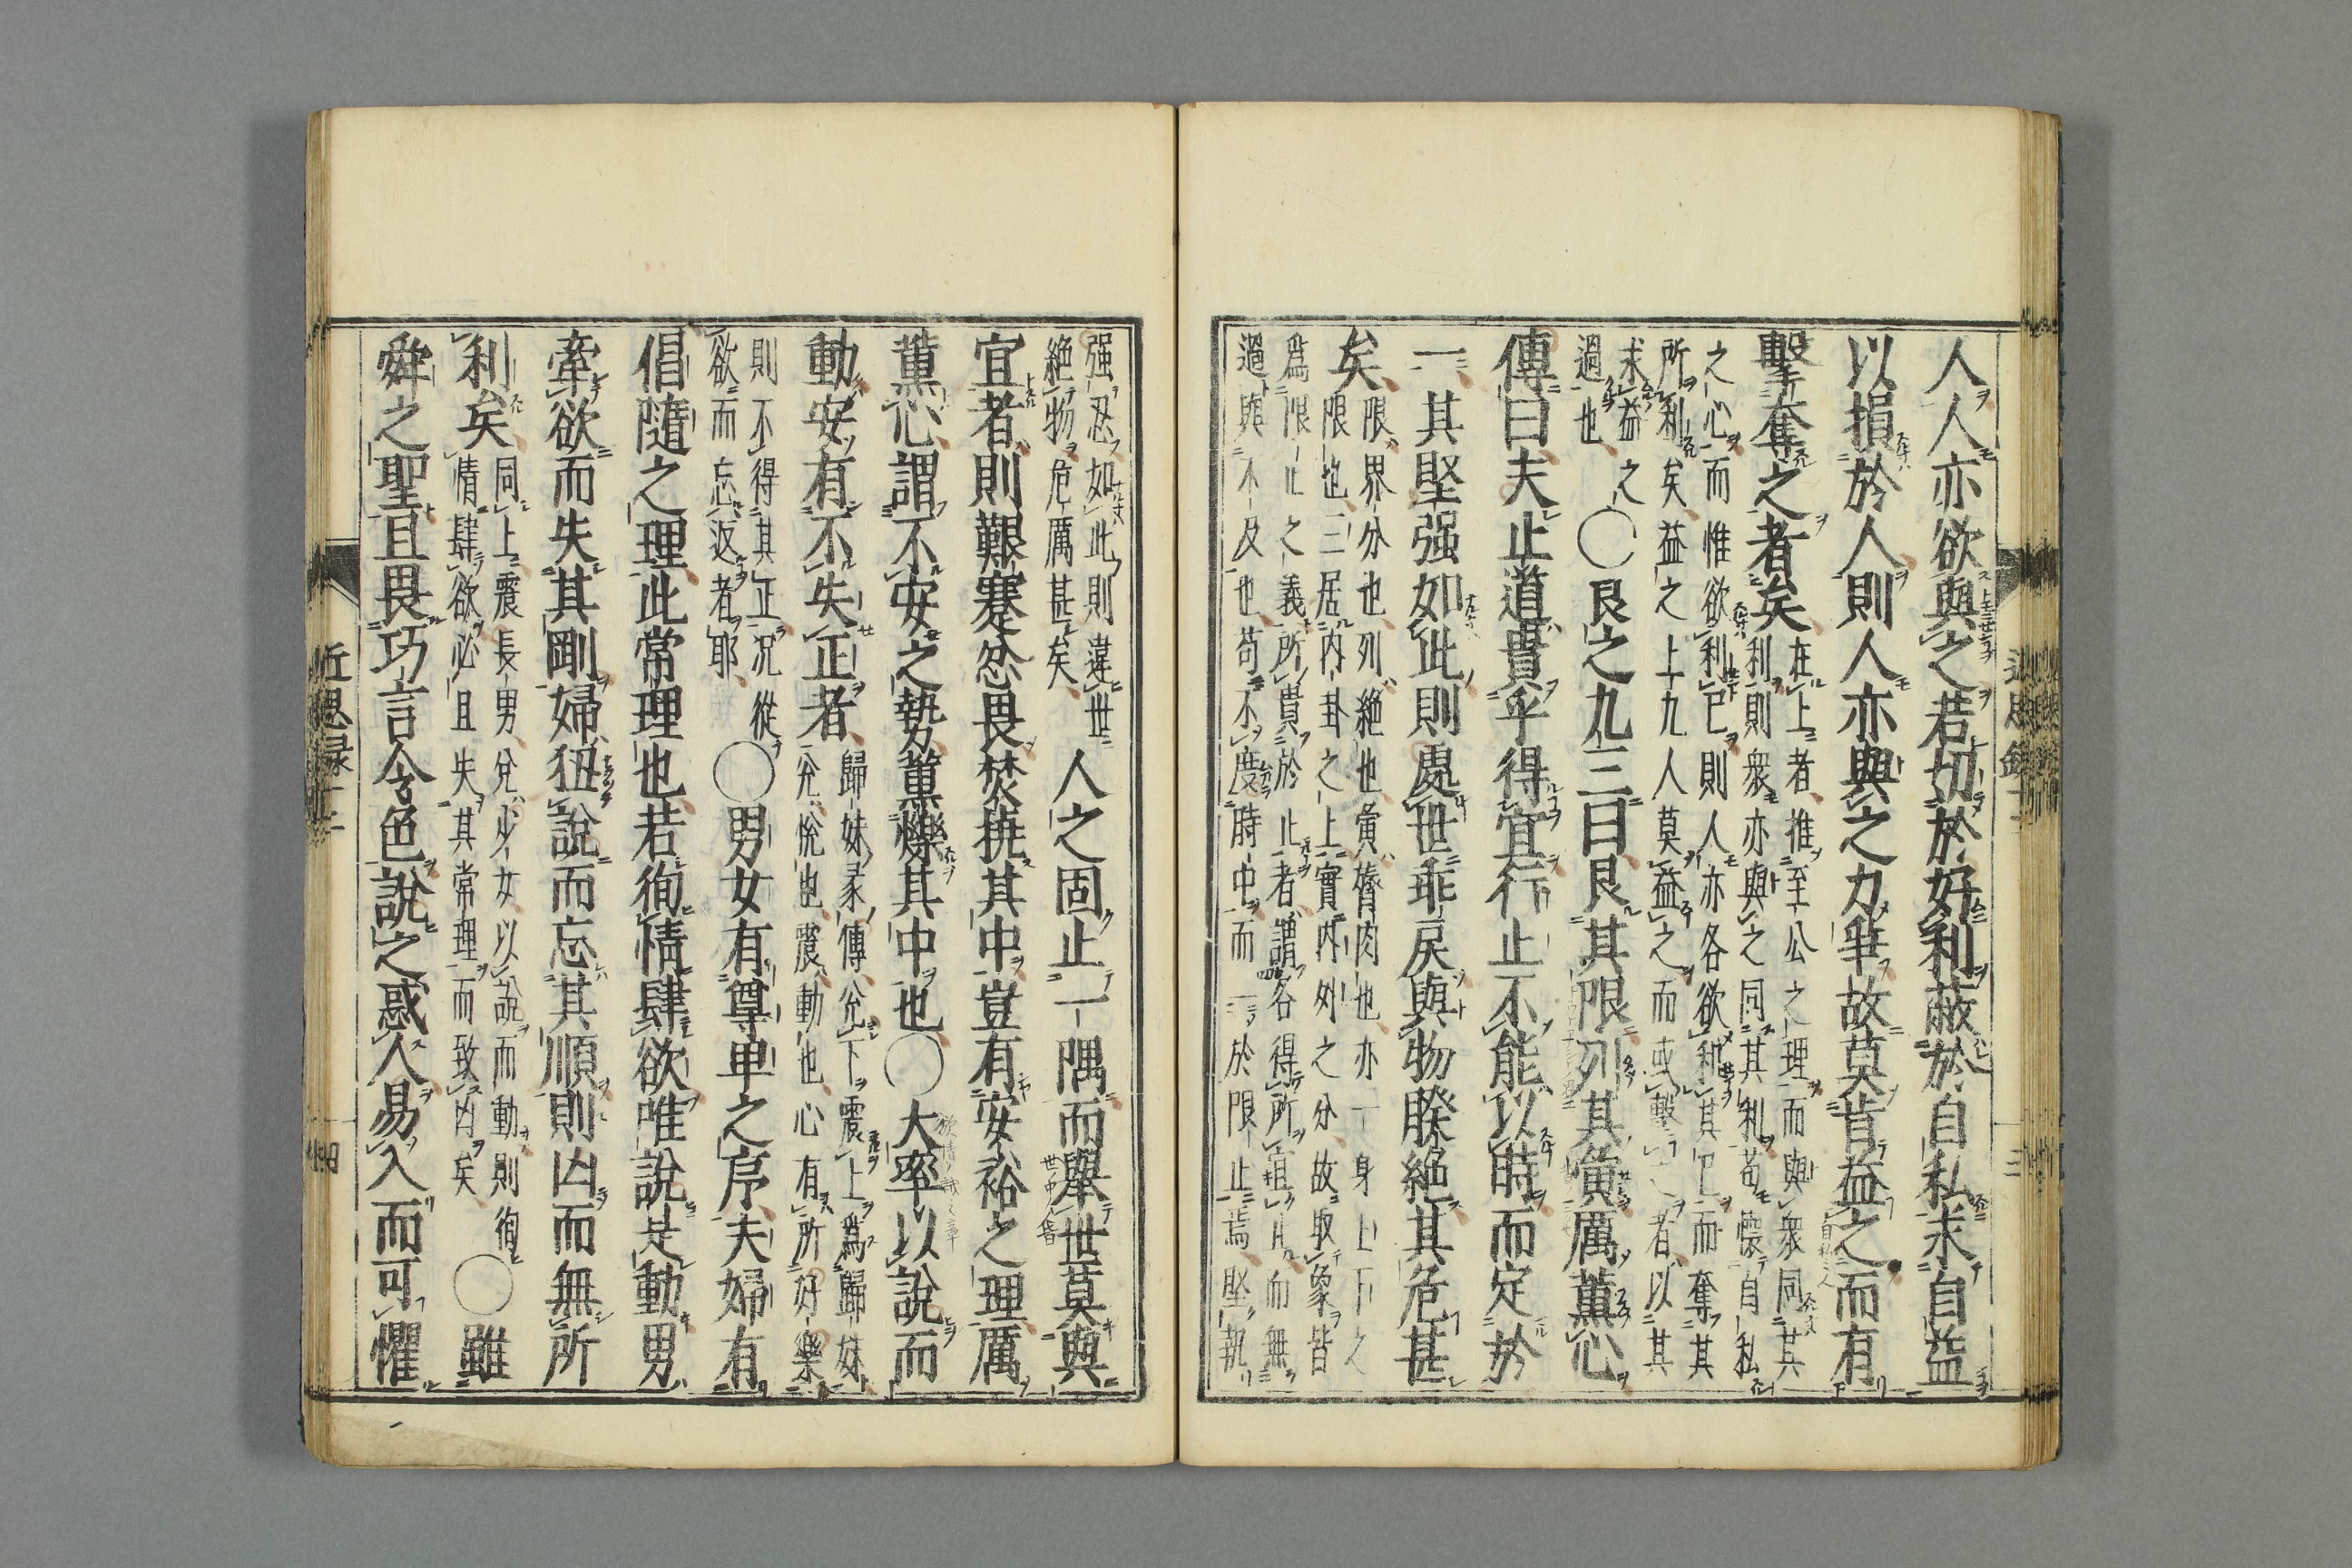 人人亦欲與之若切於好利蔽於自私求自益
以損於人則人亦與之力爭故莫肯益之而有
擊奪之者矣
在上者推至公之理而與衆同其
利則衆亦與之同其利苟懷自私
之心而惟欲利已則人亦各欲利其已而奪其
所利矣益之上九人莫益之而或擊之者以其
求益之
過也
〇艮之九三曰艮其限列其夤厲薰心
傳曰夫止道貴乎得宜行止不能以時而定於
一其堅强如此則處世乖戾與物睽絶其危甚
矣
限界分也列絶也夤膂肉也亦一身上下之
限也三居内卦之上實内外之分故取象皆
爲限止之義所貴於止者謂各得所宜止而無
過與不及也苟不度時中而一於限止焉堅執
强忍如此則違世
絶物危厲甚矣
人之固止一隅而舉世莫與
宜者則艱蹇忿畏焚撓其中豈有安裕之理厲
薰心謂不安之勢薰爍其中也〇大率以說而
動安有不失正者
歸妹彖傳兌下震上爲歸妹
兌悅也震動也心有所好樂
則不得其正況從
欲而忘返者耶
〇男女有尊卑之序夫婦有
倡隨之理此常理也若徇情肆欲唯說是動男
牽欲而失其剛婦狃說而忘其順則凶而無所
利矣
同上震長男兌少女以說而動則徇
情肆欲必且失其常理而致凶矣
〇雖
舜之聖且畏巧言令色說之惑人易入而可懼
近思録十二
四
三